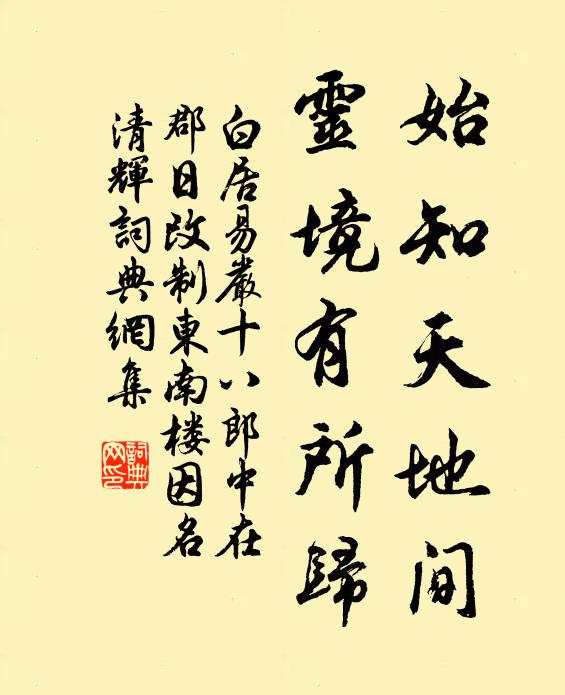 始知天地間
靈境有所歸
白居易嚴十八郎中在
郡日改制東南楼因名
清輝詞典網集
詞典
网印